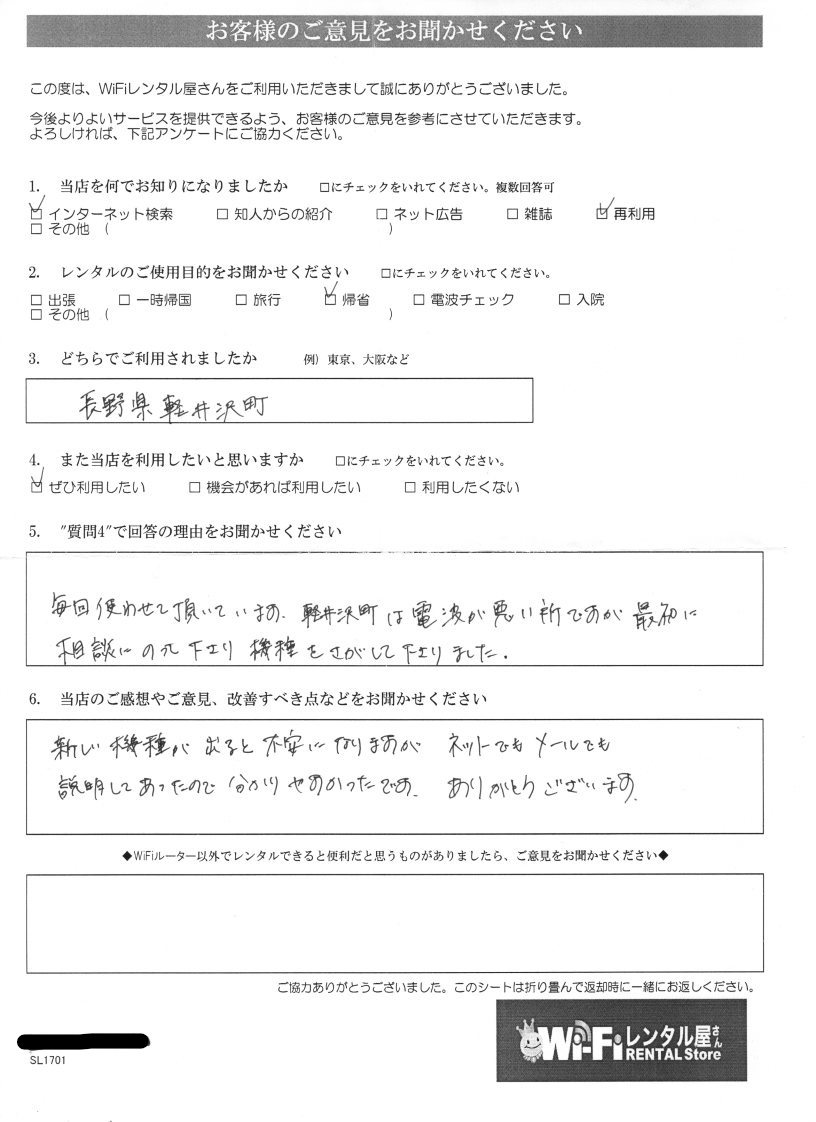 お客様のご意見をお聞かせください
この度は、WiFiレンタル屋さんをご利用いただきまして誠にありがとうございました。
今後よりよいサービスを提供できるよう、お客様のご意見を参考にさせていただきます。
よろしければ、下記アンケートにご協力ください。
1. 当店を何でお知りになりましたか □にチェックをいれてください。複数回答可
☑ インターネット検索 □ 知人からの紹介 □ ネット広告 □ 雑誌 ☑ 再利用
□ その他 ( )
2. レンタルのご使用目的をお聞かせください □にチェックをいれてください。
□ 出張 □ 一時帰国 □ 旅行 ☑ 帰省 □ 電波チェック □ 入院
□ その他 ( )
3. どちらでご利用されましたか 例) 東京、大阪など
長野県軽井沢町
4. また当店を利用したいと思いますか □にチェックをいれてください。
☑ ぜひ利用したい □ 機会があれば利用したい □ 利用したくない
5. "質問4"で回答の理由をお聞かせください
毎回使わせて頂いています。軽井沢町は電波が悪い所ですが最初に
相談にのって下さり機種をさがして下さりました。
6. 当店のご感想やご意見、改善すべき点などをお聞かせください
新しい機種が出ると不安になりますが ネットでもメールでも
説明してあったので分かりやすかったです。ありがとうございます。
◆WiFiルーター以外でレンタルできると便利だと思うものがありましたら、ご意見をお聞かせください◆
ご協力ありがとうございました。このシートは折り畳んで返却時に一緒にお返しください。
Wi-Fiレンタル屋さん
RENTAL Store
SL1701